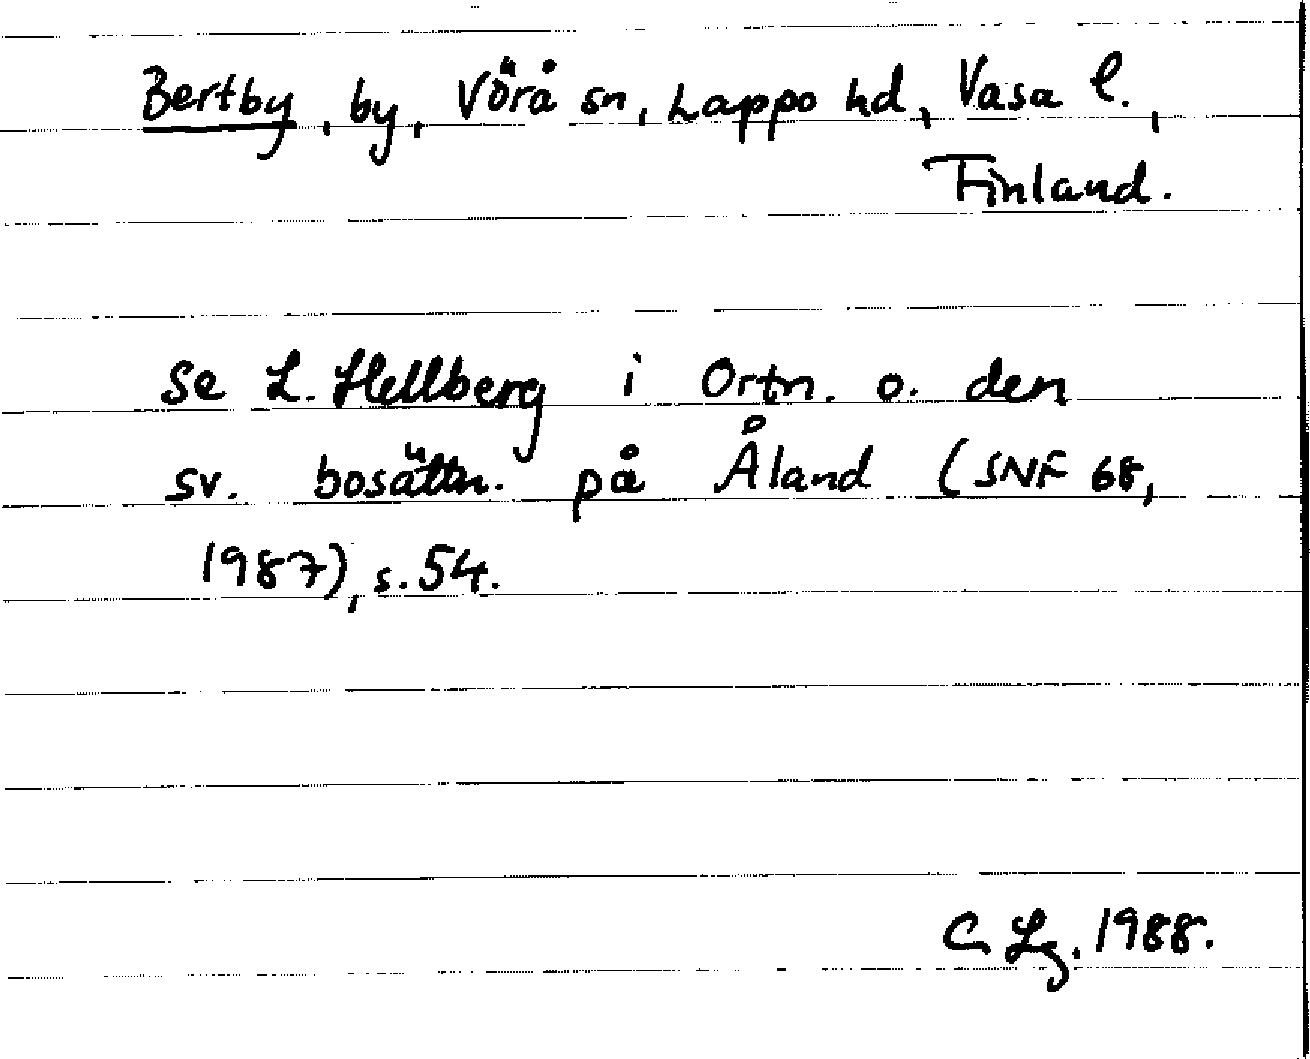 Bertby, by, Vörå sn, Lappo hd, Vasa l.,
Finland.
Se L. Hellberg i Ortn. o. den
sv. bosättn. på Åland (SNF 68,
1987), s. 54.
C Lg. 1988.